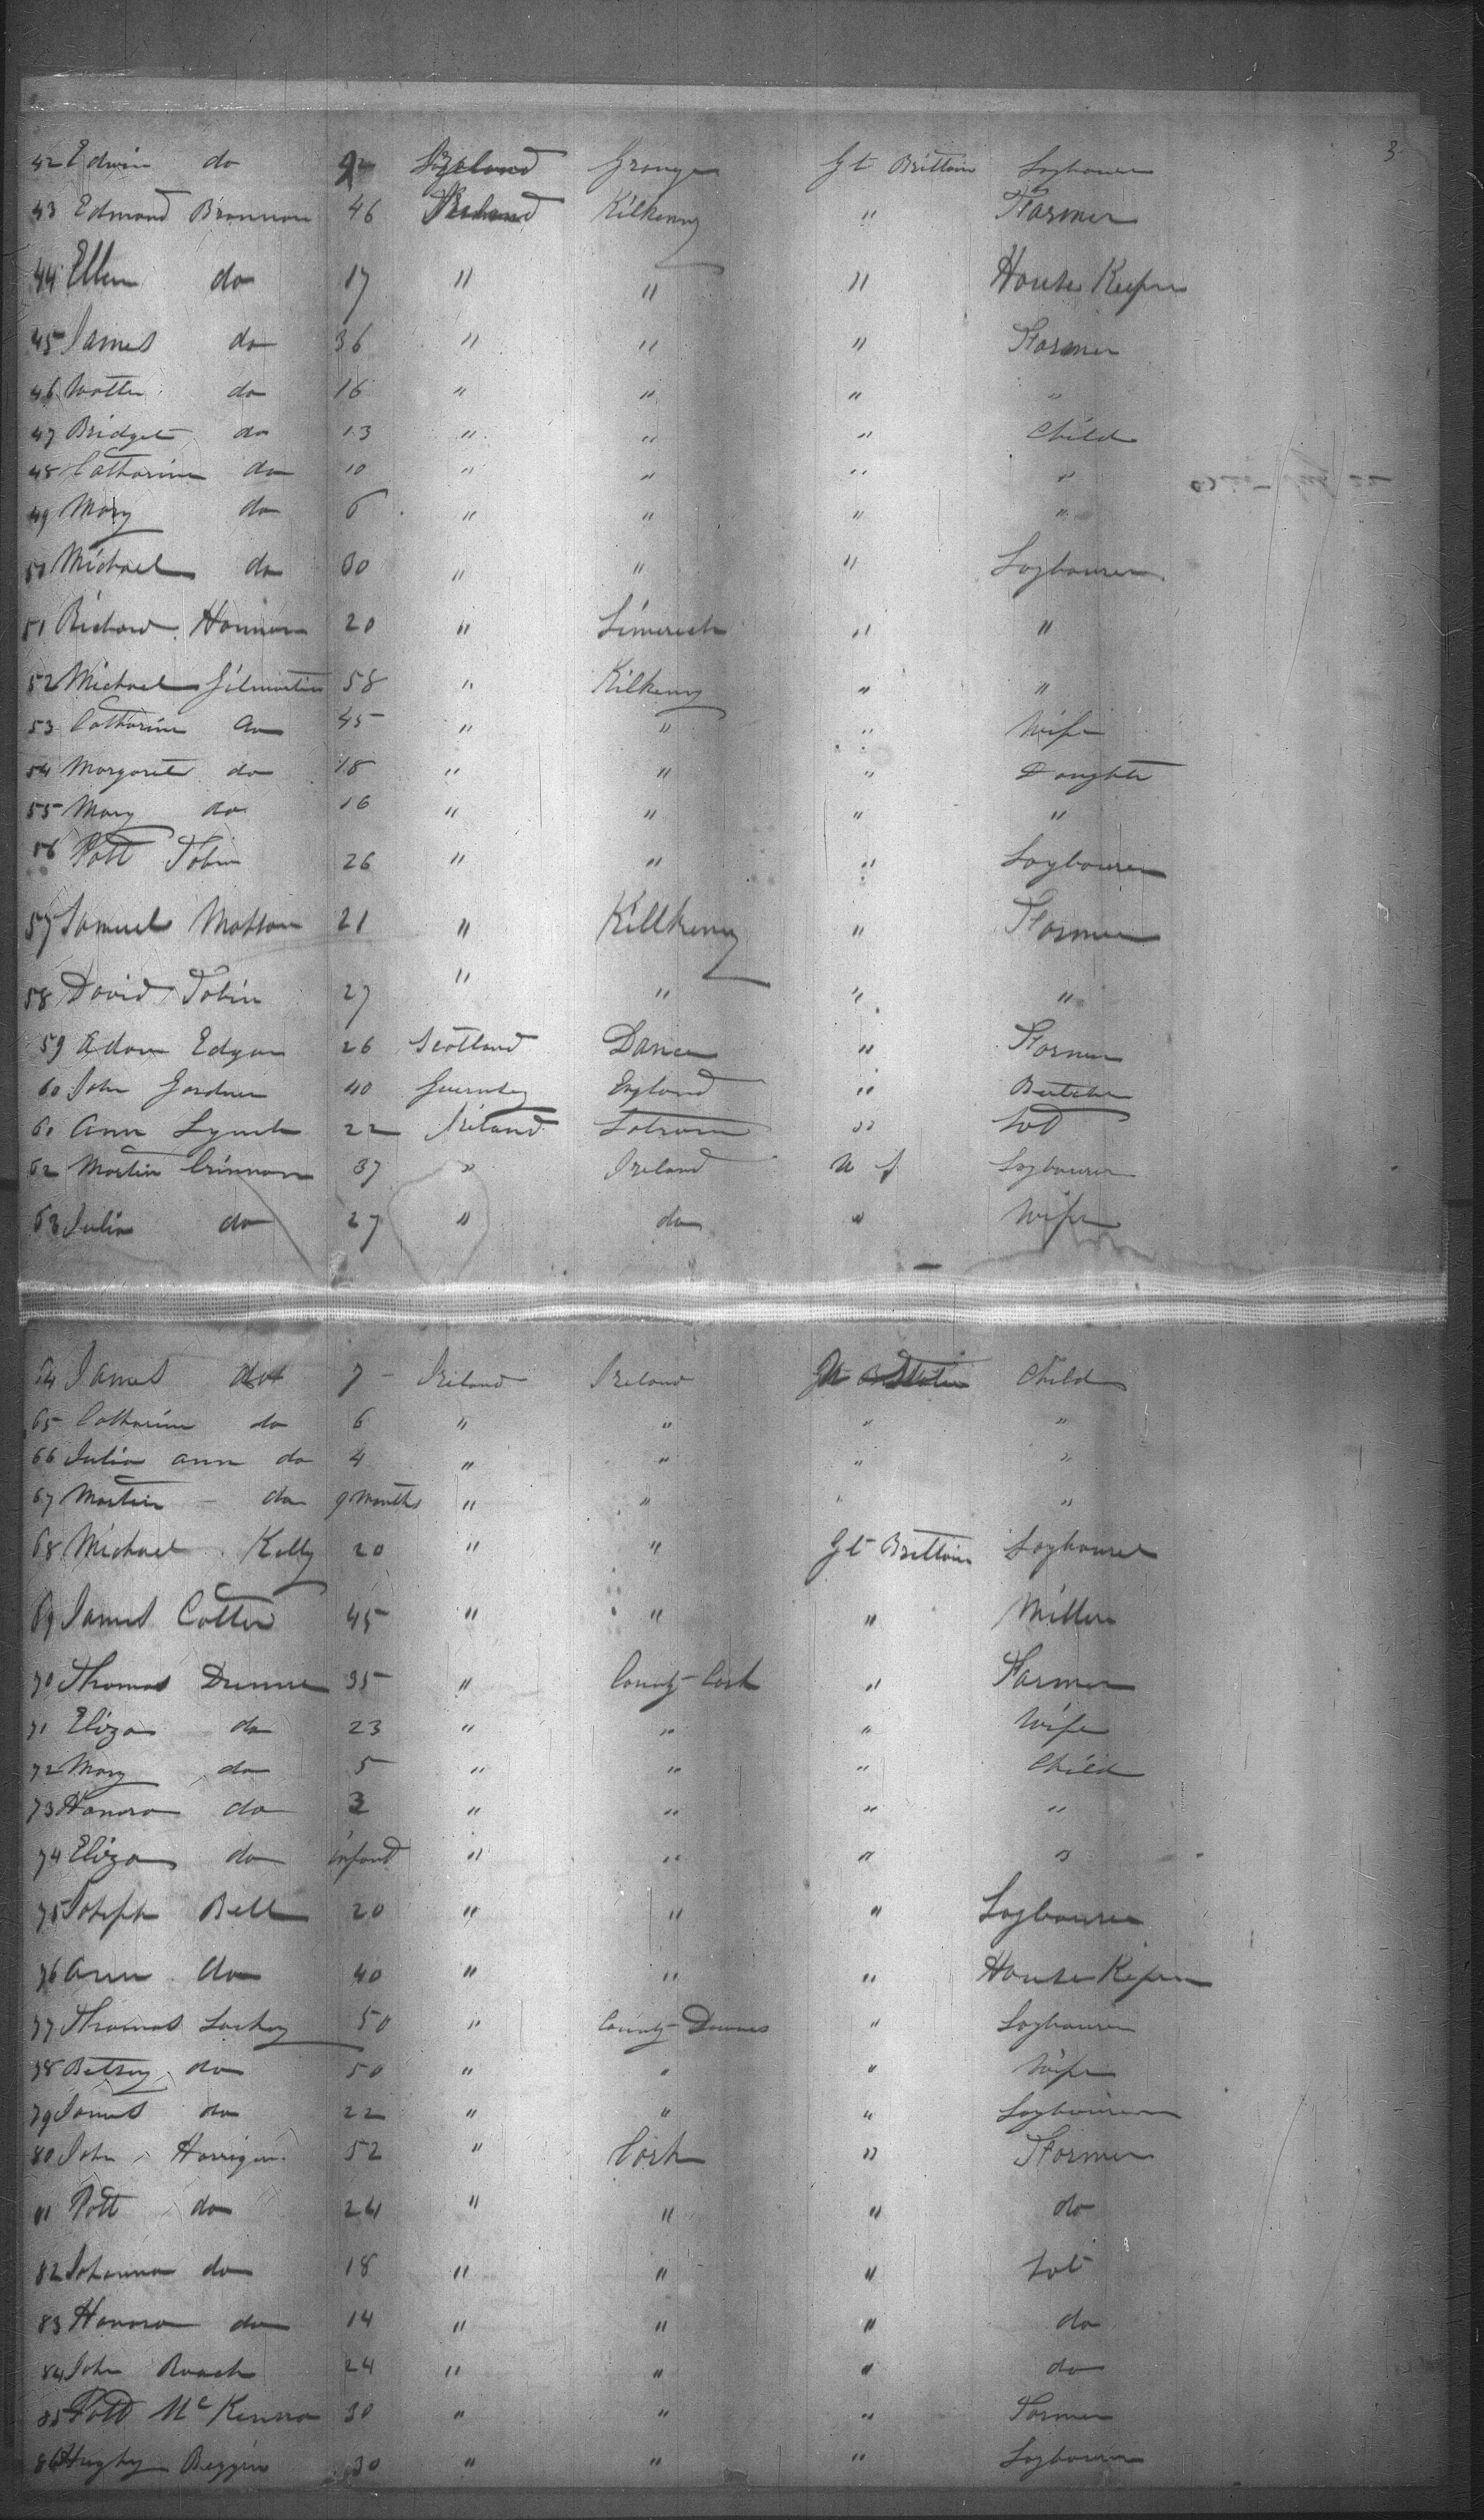 3
42 Edwin do Grange Gt Brittain Laybourer
43 Edmond Brannan 46 Ireland Kilkenny " Farmer
44 Ellen do 17 " " " House Keeper
45 James do 36 " " " Farmer
46 Watter do 16 " " " "
47 Bridget do 13 " " " Child
48 Catharine do 10 " " " "
49 Mary do 6 " " " "
50 Michael do 30 " " " Laybourer
51 Richard 20 " Limerick " "
52 Michael Gilmartin 58 " Kilkenny " "
53 Catharine do 45 " " " Wife
54 Margaret do 18 " " " Daughter
55 Mary do 16 " " " "
56 Patt Tobin 26 " " " Laybourer
57 Samuel 21 " Killkenny " Farmer
58 David Tobin 27 " " " "
59 Adam Edgar 26 Scotland " Farmer
60 John Gardner 40 Guernsey England " Butcher
61 Ann Lynch 22 Ireland "
62 Martin Crinnan 37 " Ireland U S Laybourer
63 Julia do 27 " do " Wife
64 James do 7 - Ireland Ireland Child
65 Catharine do 6 " " " "
66 Julia Ann do 4 " " " "
67 Martin - do 9 Months " " " "
68 Michael Kelly 20 " " Gt Brittain Laybourer
69 James Cotter 45 " " " Miller
70 Thomas Dunne 35 " County Cork " Farmer
71 Eliza do 23 " " " Wife
72 Mary do 5 " " " Child
73 Hanora do 3 " " " "
74 Eliza do infant " " " "
75 Joseph Bell 20 " " " Laybourer
76 Ann do 40 " " " House Keper
77 Thomas Laskey 50 " County Downes " Laybourer
78 Betsey do 50 " " " Wife
79 James do 22 " " " Laybourer
80 John Harrigan 52 " Cork " Farmer
81 Patt do 24 " " " do
82 Johanna do 18 " " "
83 Hanora do 14 " " " do
84 John Roach 24 " " " do
85 Patt McKenna 30 " " " Farmer
86 Hughy Beggin 30 " " " Laybourer